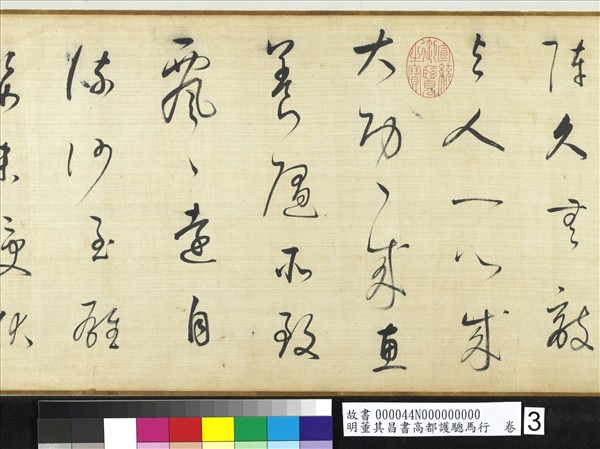 陣久無敵
與人一心成
大功〻成惠
養隨所致
飄〻遠自
流沙至雄
姿未受伏
宣統御覽之寶
故書 000044N000000000
明董其昌書高都護驄馬行 卷 3